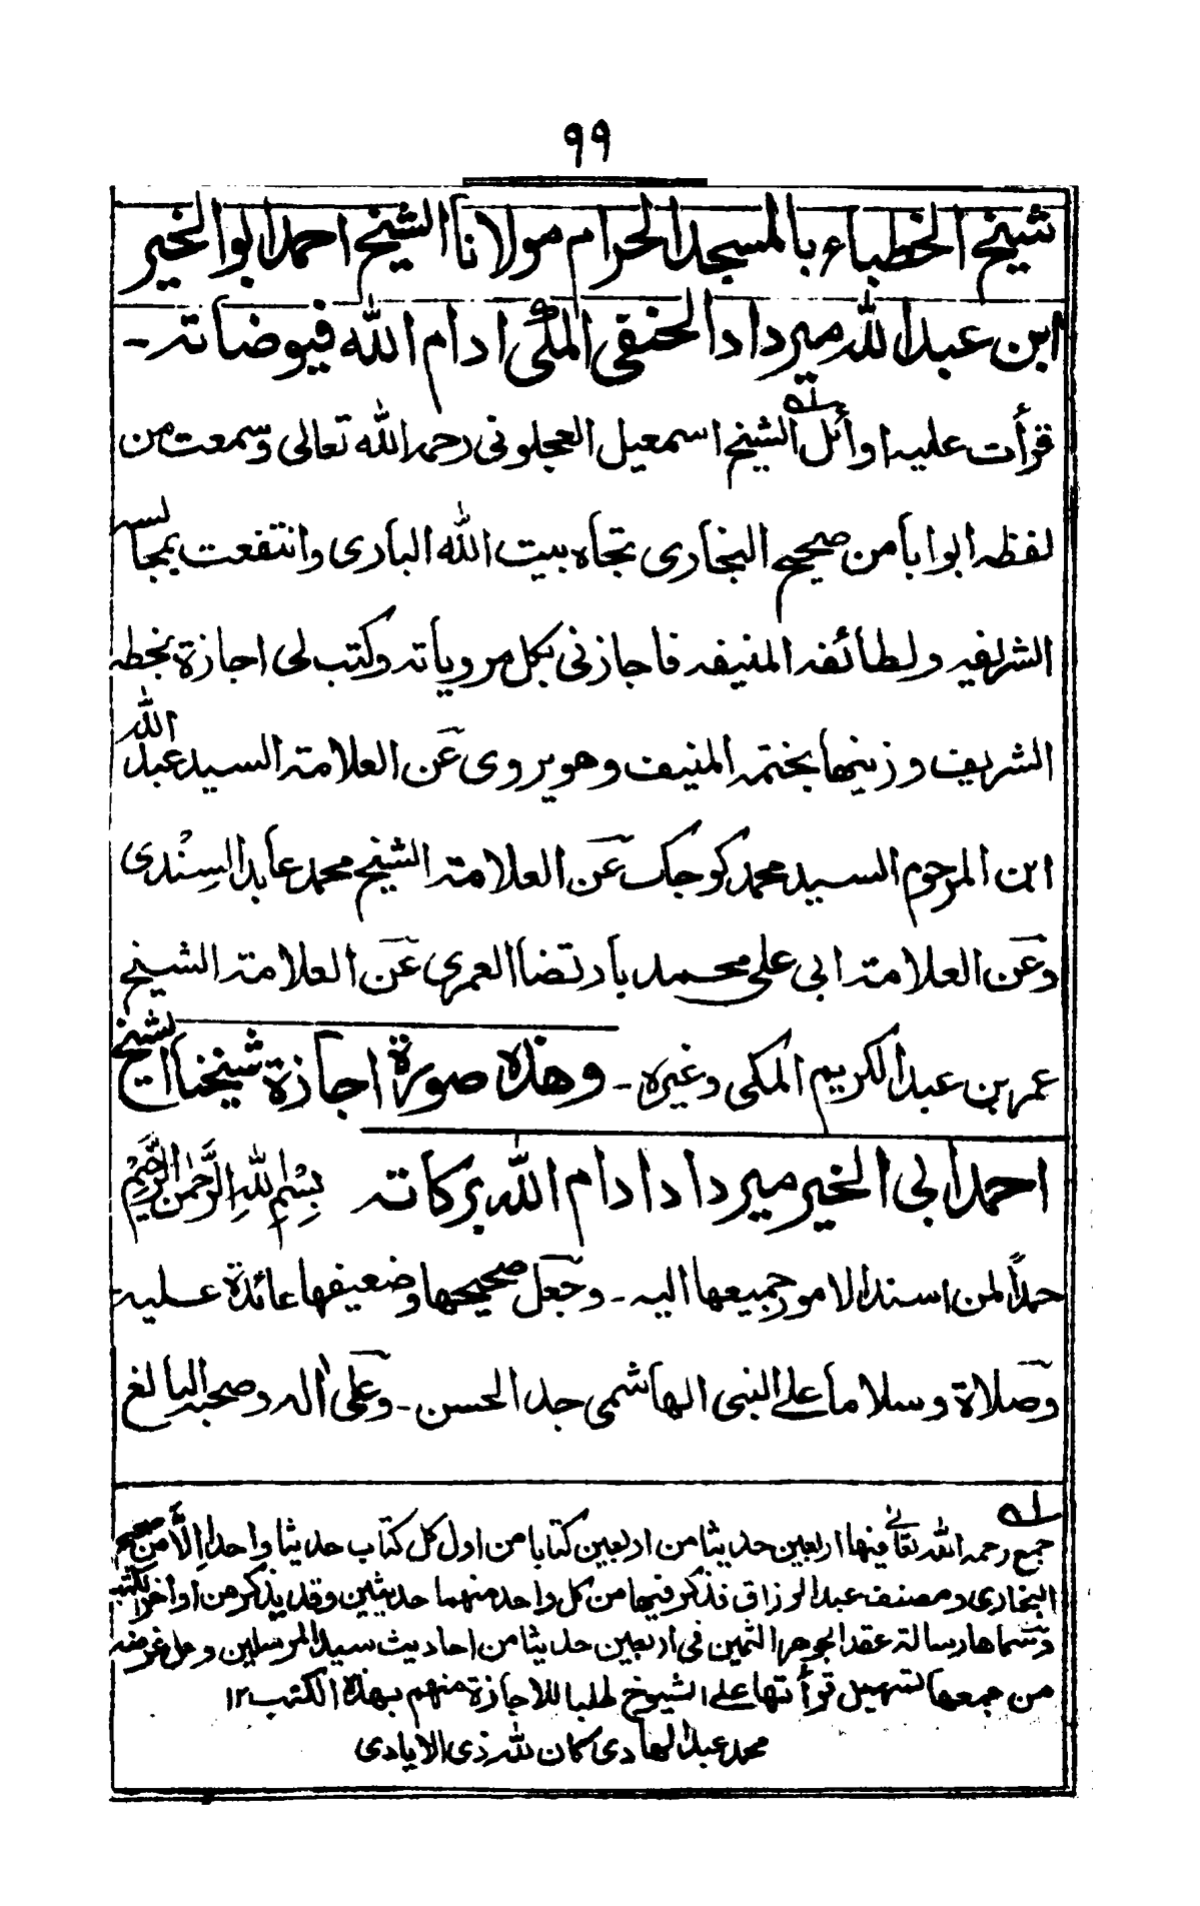 ٩٩
شيخ الخطباء بالمسجد الحرام مولانا الشيخ احمد ابو الخير
ابن عبد الله ميرداد الحنفي المكي ادام الله فيوضاته -
قرأت عليه اوائل الشيخ اسمعيل العجلوني رحمه الله تعالى وسمعت من
لفظه ابوابا من صحيح البخاري تجاه بيت الله الباري وانتفعت بمجالسه
الشريفه ولطائفه المنيفه فاجازني بكل مروياته وكتب لي اجازة بخطه
الشريف وزينها بختمه المنيف وهو يروي عن العلامة السيد عبد الله
ابن المرحوم السيد محمد كوجك عن العلامة الشيخ محمد عابد السِنْدي
وعن العلامة ابي علي محمد بارتضا العمري عن العلامة الشيخ
عمر بن عبد الكريم المكي وغيره - وهذه صورة اجازة شيخنا الشيخ
احمد ابي الخير ميرداد ادام الله بركاته بِسْمِ اللهِ الرَّحمٰنِ الرَّحِيْمِ
حمدًا لمن اسند الامور جميعها اليه - وجعل صحيحها وضعيفها عائدة عليه
وصلاة وسلاما على النبي الهاشمي جد الحسن - وعلى اله وصحبه البالغ
له
جمع رحمه الله تعالى فيها اربعين حديثا من اربعين كتابا من اول كل كتاب حديثا واحدا اِلَّا من صحيح
البخاري ومصنف عبد الرزاق فذكر فيها من كل واحد منهما حديثين وقد يذكر من اواخر الكتب
وسماها رسالة عقد الجوهر الثمين في اربعين حديثا من احاديث سيد المرسلين وجل غرضه
من جمعها تسهيل قرأتها على الشيوخ طلبا للاجازة منهم بهذه الكتب ١٢
محمد عبد الهادي كان لله ذي الايادي